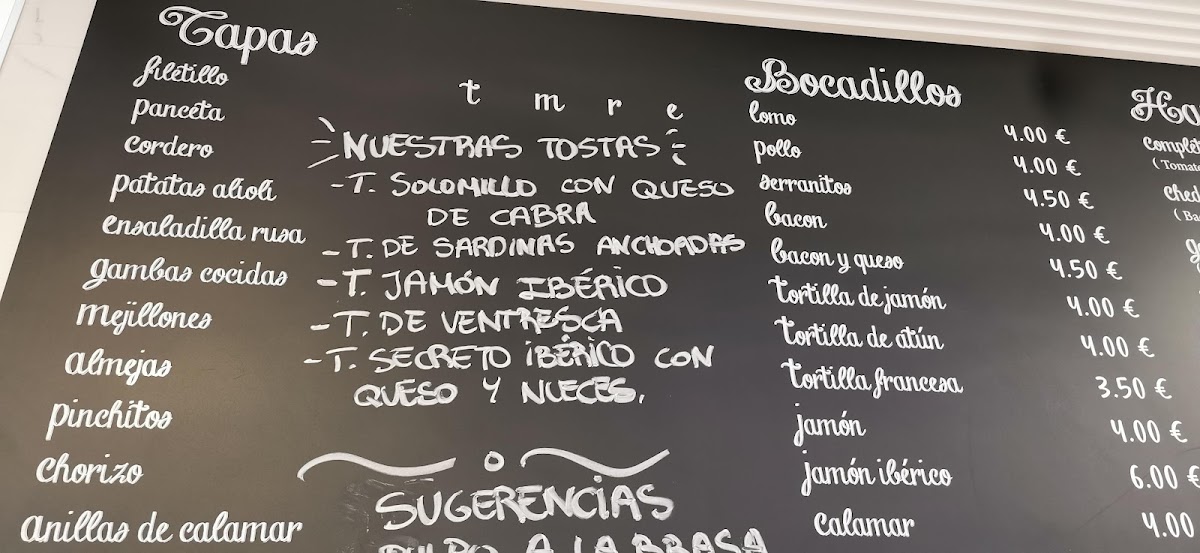 Tapas
filetillo
panceta
cordero
patatas alioli
ensaladilla rusa
gambas cocidas
mejillones
almejas
pinchitos
chorizo
anillas de calamar
t m r e
NUESTRAS TOSTAS
-T. SOLOMILLO CON QUESO
DE CABRA
-T. DE SARDINAS ANCHOADAS
-T. JAMÓN IBÉRICO
-T. DE VENTRESCA
-T. SECRETO IBÉRICO CON
QUESO Y NUECES.
o
SUGERENCIAS
PULPO A LA BRASA
Bocadillos
lomo 4.00 €
pollo 4.00 €
serranitos 4.50 €
bacon 4.00 €
bacon y queso 4.50 €
tortilla de jamón 4.00 €
tortilla de atún 4.00 €
tortilla francesa 3.50 €
jamón 4.00 €
jamón ibérico 6.00 €
calamar 4.00